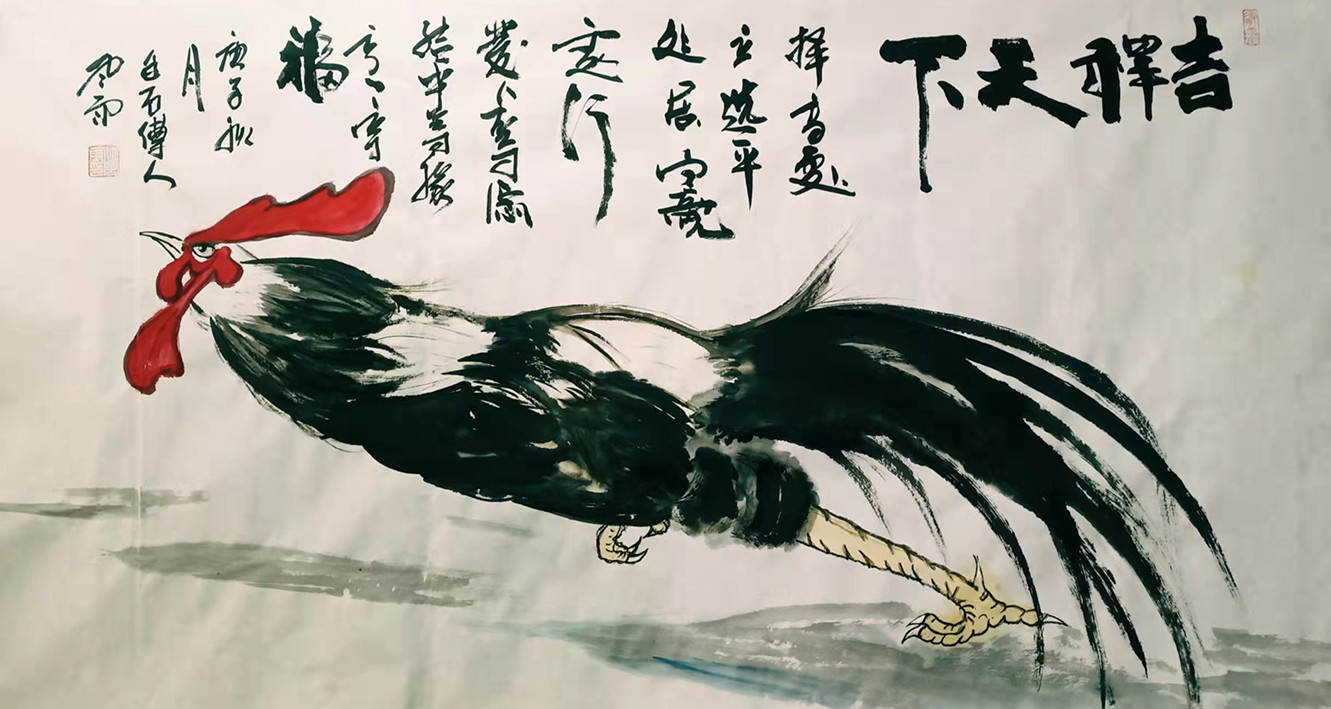 吉祥天下
择高處
立选平
处居向寬
處行
發上等愿
结中等缘
享下等
福
庚子秋
月
白石傳人
风雨